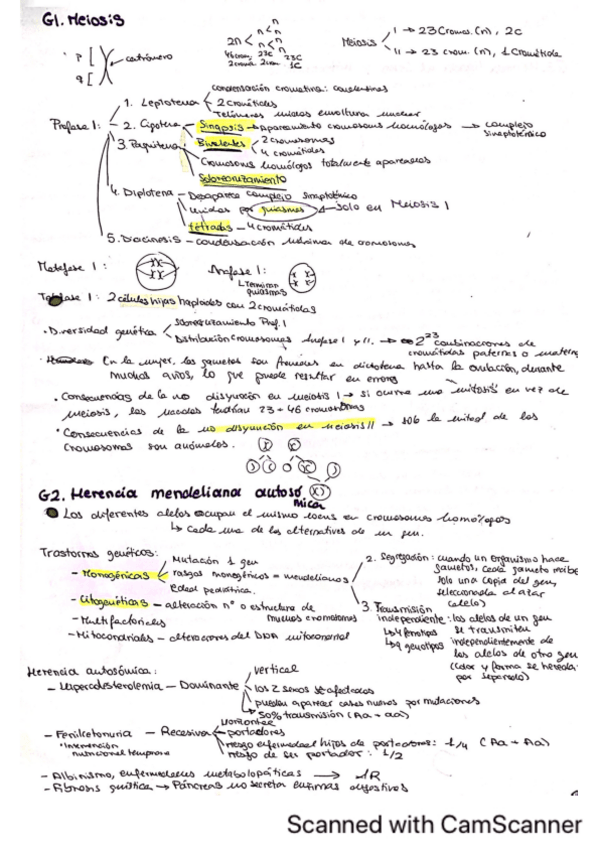 G1. Meiosis
n n
2n n n
46crom. 23C 23C
2crom. 2crom. 1C
Meiosis I → 23 Cromos. (n), 2c
II → 23 crom. (n), 1 Cromátida
p
q
centrómero
condensación cromatina:
Profase I: 1. Leptoteno 2 cromátides
Telómeros unidos envoltura nuclear
2. Cigoteno - Sinapsis → apareamiento cromosomas homólogos → complejo sinaptotémico
3. Paquiteno Bivalentes 2 cromosomas
4 cromátides
Cromosomas homólogos totalmente apareados
Sobrecruzamiento
4. Diplotena - Desaparece complejo sinaptotémico
Unidas por quiasmas solo en Meiosis I
tétradas - 4 cromátidas
5. Diacinesis - condensación máxima de cromosomas
Metafase I: Anafase I:
Terminan quiasmas
Telofase I: 2 células hijas haploides con 2 cromátidas
· Diversidad genética sobrecruzamiento Prof. I
Distribución cromosomas Anafase I y II. → 2²³ combinaciones de
cromátidas paternas o matern
· En la mujer, los gametos son en dictotena hasta la ovulación, durante
muchos años, lo que puede resultar en errores
· Consecuencias de la no disyunción en meiosis I → si ocurre una mitosis en vez de
meiosis, los tendrán 23 + 46 cromosomas
· Consecuencias de la no disyunción en meiosis II → solo la mitad de los
cromosomas son anómalos.
G2. Herencia mendeliana autosómica
Los diferentes alelos ocupan el mismo locus en cromosomas homólogos
↳ Cada una de las alternativas de un gen.
Trastornos genéticos:
- Monogénicas Mutación 1 gen
rasgos monogénicos = mendelianos
Edad pediátrica.
- Citogenéticas - alteración nº o estructura de
muchos cromosomas
- Multifactoriales
- Mitocondriales - alteraciones del DNA mitocondrial
2. Segregación: cuando un organismo hace
gametos, cada gameto recibe
solo una copia del gen,
seleccionada al azar
(alelo)
3. Transmisión
independiente: los alelos de un gen
↳ 4 fenotipos se transmiten
↳ 9 genotipos independientemente de
los alelos de otro gen
(color y forma se heredan
por separado)
Herencia autosómica:
- Hipercolesterolemia - Dominante vertical
los 2 sexos afectados
pueden aparecer casos nuevos por mutaciones
50% transmisión (Aa - aa)
- Fenilcetonuria - Recesiva horizontal
· Intervención
nutricional temprana
portadores
riesgo enfermedad hijos de portadores: 1/4 (Aa - Aa)
riesgo de ser portador: 1/2
- Albinismo, enfermedades metabolopáticas → AR
- Fibrosis quística → Páncreas no secreta enzimas digestivos
Scanned with CamScanner